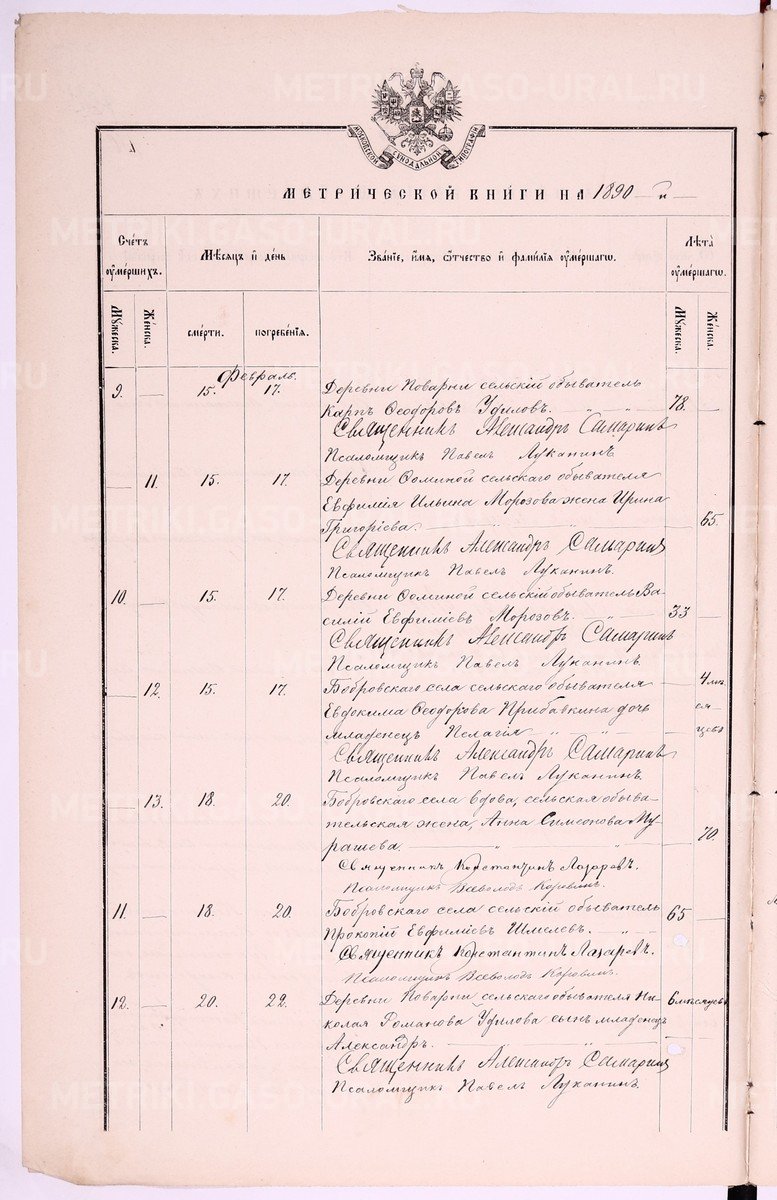 МОСКОВСКОЙ СѴНОДАЛЬНОЙ ТИПОГРАФІИ
МЕТРИ́ЧЕСКОЙ КНИ́ГИ НА 1890 г.
Сче́тъ ᲂу҆ме́ршихъ.
Мѣ́сѧцъ и҆ де́нь
Зва́нїе, и҆́мѧ, ѻ҆́тчество и҆ фами́лїѧ ᲂу҆ме́ршагѡ.
Лѣ́та ᲂу҆ме́ршагѡ.
Мꙋ́жеска.
Же́нска.
сме́рти.
погребе́нїѧ.
Мꙋ́жеска.
Же́нска.
Февраль.
9. — 15. 17. Деревни Поварни сельскій обыватель
Карпъ Ѳеодоровъ Уфиловъ. — „ — „ — 78. —
Священникъ Александръ Самаринъ
Псаломщикъ Павелъ Луканинъ.
— 11. 15. 17. Деревни Ѳоминой сельскаго обывателя
Евфимія Ильина Морозова жена Ирина
Григоріева. — „ — „ — — 65.
Священникъ Александръ Самаринъ
Псаломщикъ Павелъ Луканинъ.
10. — 15. 17. Деревни Ѳоминой сельскій обыватель Ва-
силій Евфиміевъ Морозовъ. — „ — 33 —
Священникъ Александръ Самаринъ
Псаломщикъ Павелъ Луканинъ.
— 12. 15. 17. Бобровскаго села сельскаго обывателя — 4 мѣ-
Евдокима Ѳеодорова Прибавкина дочь ся-
младенецъ Пелагія — „ — „ — цевъ
Священникъ Александръ Самаринъ
Псаломщикъ Павелъ Луканинъ.
— 13. 18. 20. Бобровскаго села вдова, сельская обыва-
тельская жена, Анна Симеонова Му-
рашева. — „ — „ — — 70.
Священникъ Константинъ Лазаревъ.
Псаломщикъ Всеволодъ Коровинъ.
11. — 18. 20. Бобровскаго села сельскій обыватель 65 —
Прокопій Евфиміевъ Шмелевъ. — „ —
Священникъ Константинъ Лазаревъ.
Псаломщикъ Всеволодъ Коровинъ.
12. — 20. 22. Деревни Поварни сельскаго обывателя Ни- 6 мѣсяцевъ
колая Романова Уфилова сынъ младенецъ
Александръ. —
Священникъ Александръ Самаринъ
Псаломщикъ Павелъ Луканинъ.
METRIKI.GASO-URAL.RU